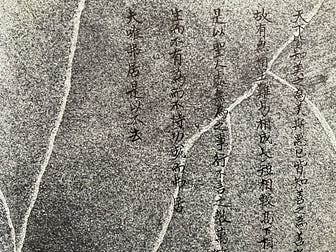 天下皆知美之為美斯惡已皆知善之為善
故有無相生難易相成長短相較高下相
是以聖人處無為之事行不言之教
生而不有為而不恃功成而弗居
夫唯弗居是以不去